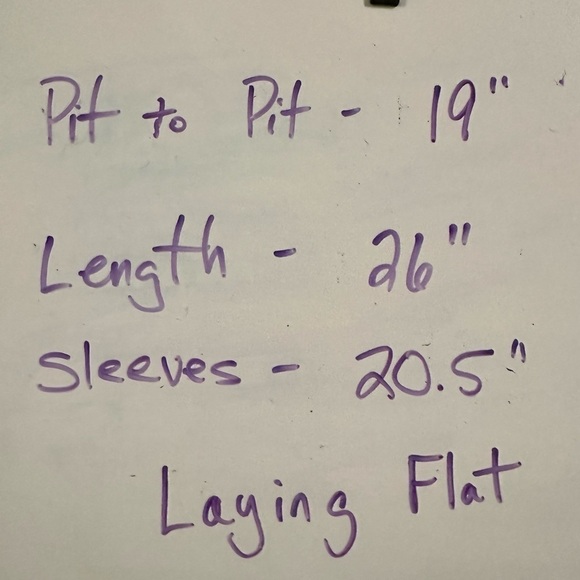 Pit to Pit - 19"
Length - 26"
Sleeves - 20.5"
Laying Flat